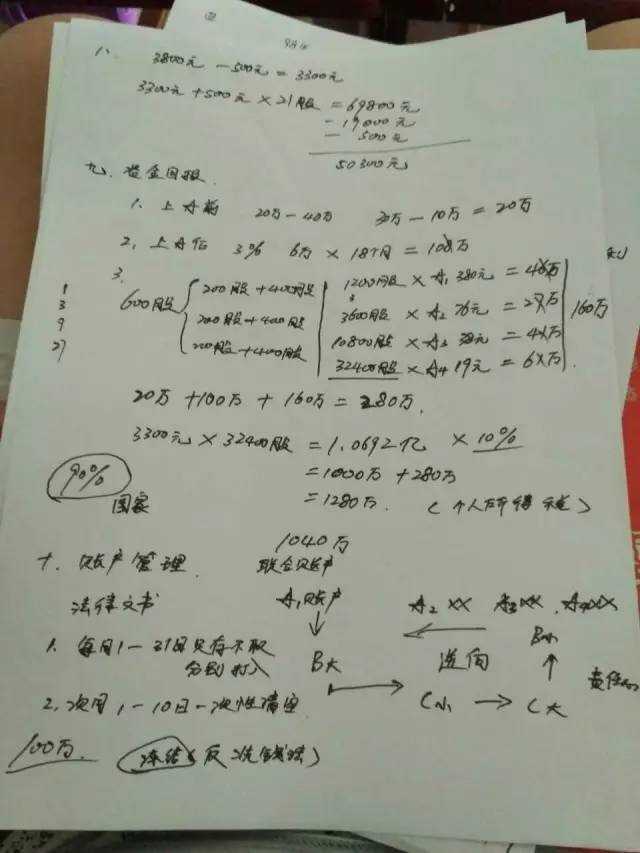 八
3800元 - 500元 = 3300元
3300元 + 500元 × 21股 = 69800元
- 19000元
- 500元
50300元
九、资金回报
1. 上A前 20万-40万 30万-10万=20万
2. 上A后 3% 6万 × 18个月 = 108万
3.
1 3 9 27
600股
200股+400股
200股+400股
200股+400股
1200股 × A1 380元 = 46万
3600股 × A2 76元 = 27万
10800股 × A3 38元 = 41万
32400股 × A4 19元 = 61万
160万
20万 + 100万 + 160万 = 280万
3300元 × 32400股 = 1.0692亿 × 10%
= 1000万 + 280万
= 1280万. (个人所得税)
90%
国家
1040万
十、账户管理 联合账户
法律文书 A1账户 A2 XX A3 XX A4 XX
1. 每月1-31日只存不取
分别打入 B大 逆向 B小
2. 次月1-10日一次性清空 C小 → C大
100万 冻结 (反洗钱法)